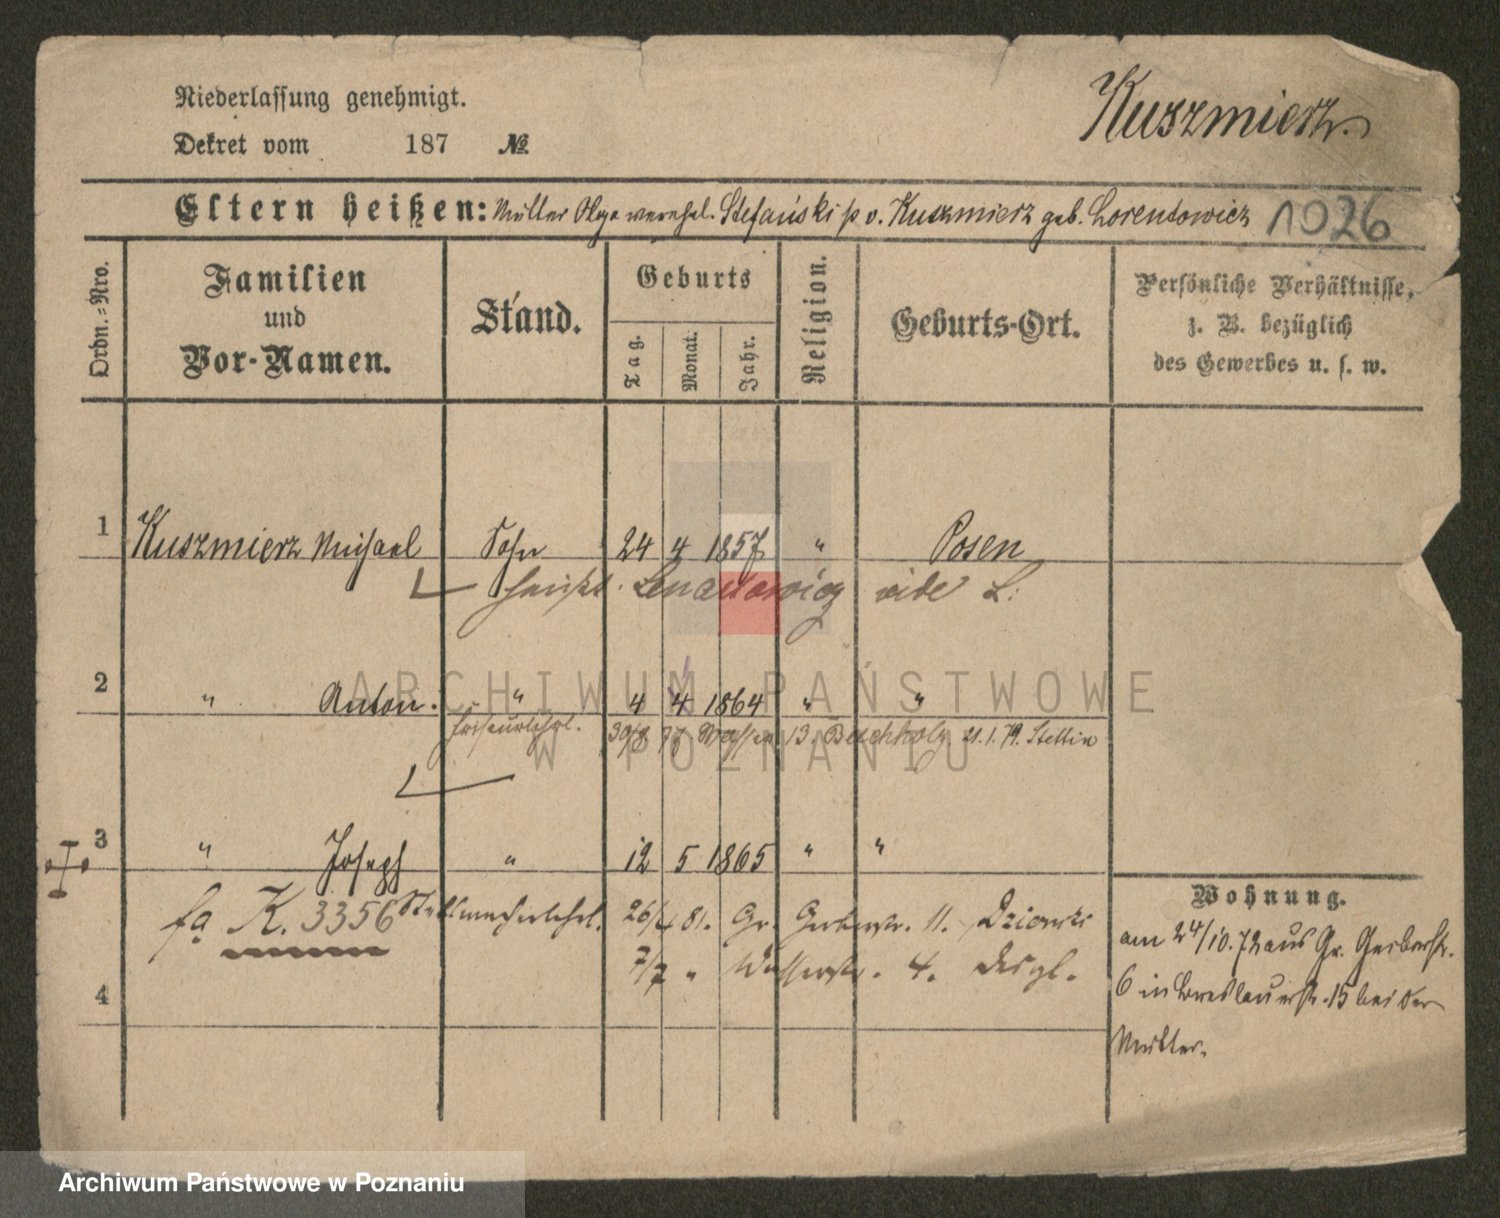 Niederlassung genehmigt.
Kuszmierz.
Dekret vom 187 №
Eltern heißen: Mutter Olga verehel. Stefański p v. Kuszmierz geb. Lorentowicz 1026
Ordn.-Nro.
Familien und Vor-Namen.
Stand.
Geburts
Tag.
Monat.
Jahr.
Religion.
Geburts-Ort.
Persönliche Verhältnisse, z. B. bezüglich des Gewerbes u. s. w.
1 Kuszmierz Michael Sohn 24 4 1857 " Posen
heißt vide L.
2 " Anton. " 4 4 1864 " "
Friseurlehrl. 30/8 77 13. Buchholz 21.1.79. Stettin
3 " Joseph " 12 5 1865 " "
fa K. 3356 Stellmacherlehrl. 81. Gr. Gerberstr. 11.
7/7 " Wasserstr. 4. desgl.
4
Wohnung.
am 24/10.72 aus Gr. Gerberstr.
6 in Breslauerstr. 15 bei der
Mutter.
ARCHIWUM PAŃSTWOWE
W POZNANIU
Archiwum Państwowe w Poznaniu